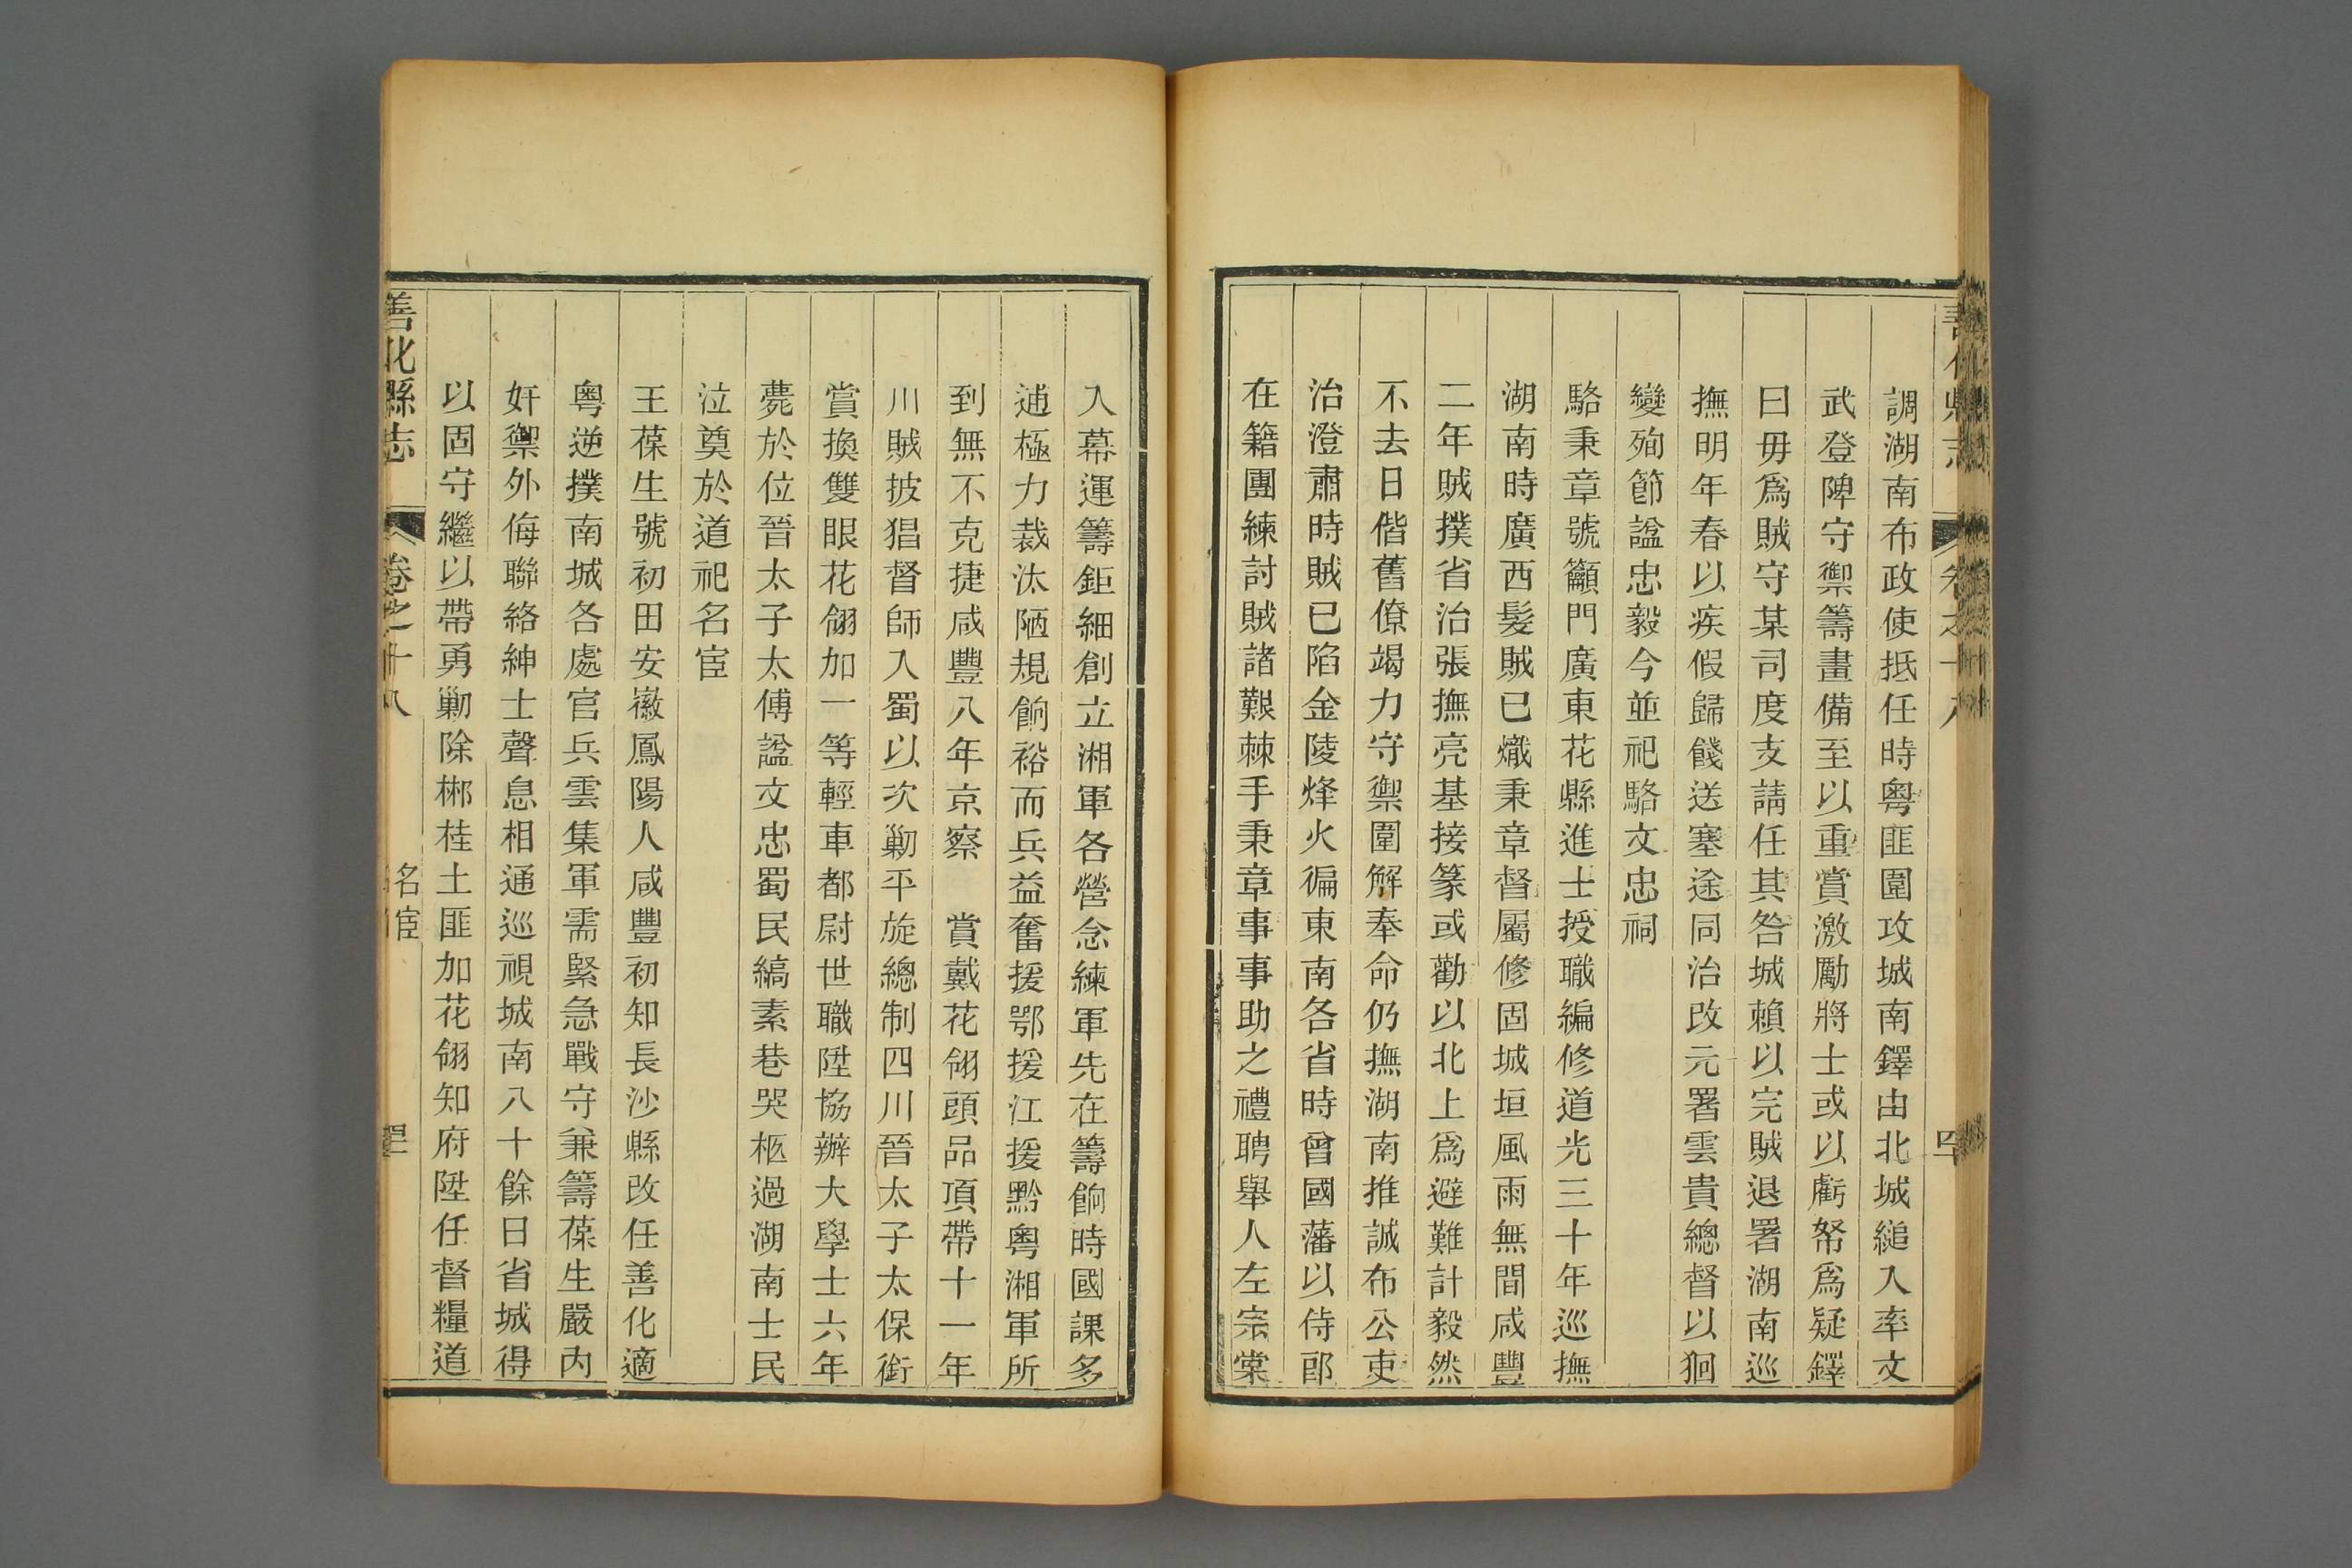 善化縣志
卷之十八
調湖南布政使抵任時粵匪圍攻城南鐸由北城縋入率文
武登陴守禦籌畫備至以重賞激勵將士或以虧帑爲疑鐸
曰毋爲賊守某司度支請任其咎城賴以完賊退署湖南巡
撫明年春以疾假歸餞送塞途同治改元署雲貴總督以狥
變殉節諡忠毅今並祀駱文忠祠
駱秉章號籲門廣東花縣進士授職編修道光三十年巡撫
湖南時廣西髮賊已熾秉章督屬修固城垣風雨無間咸豐
二年賊撲省治張撫亮基接篆或勸以北上爲避難計毅然
不去日偕舊僚竭力守禦圍解奉命仍撫湖南推誠布公吏
治澄肅時賊已陷金陵烽火徧東南各省時曾國藩以侍郎
在籍團練討賊諸艱棘手秉章事事助之禮聘舉人左宗棠
入幕運籌鉅細創立湘軍各營念練軍先在籌餉時國課多
逋極力裁汰陋規餉裕而兵益奮援鄂援江援黔粵湘軍所
到無不克捷咸豐八年京察 賞戴花翎頭品頂帶十一年
川賊披猖督師入蜀以次勦平旋總制四川晉太子太保銜
賞換雙眼花翎加一等輕車都尉世職陞協辦大學士六年
薨於位晉太子太傅諡文忠蜀民縞素巷哭柩過湖南士民
泣奠於道祀名宦
王葆生號初田安徽鳳陽人咸豐初知長沙縣改任善化適
粵逆撲南城各處官兵雲集軍需緊急戰守兼籌葆生嚴內
奸禦外侮聯絡紳士聲息相通巡視城南八十餘日省城得
以固守繼以帶勇勦除郴桂土匪加花翎知府陞任督糧道
善化縣志
卷之十八
名宦